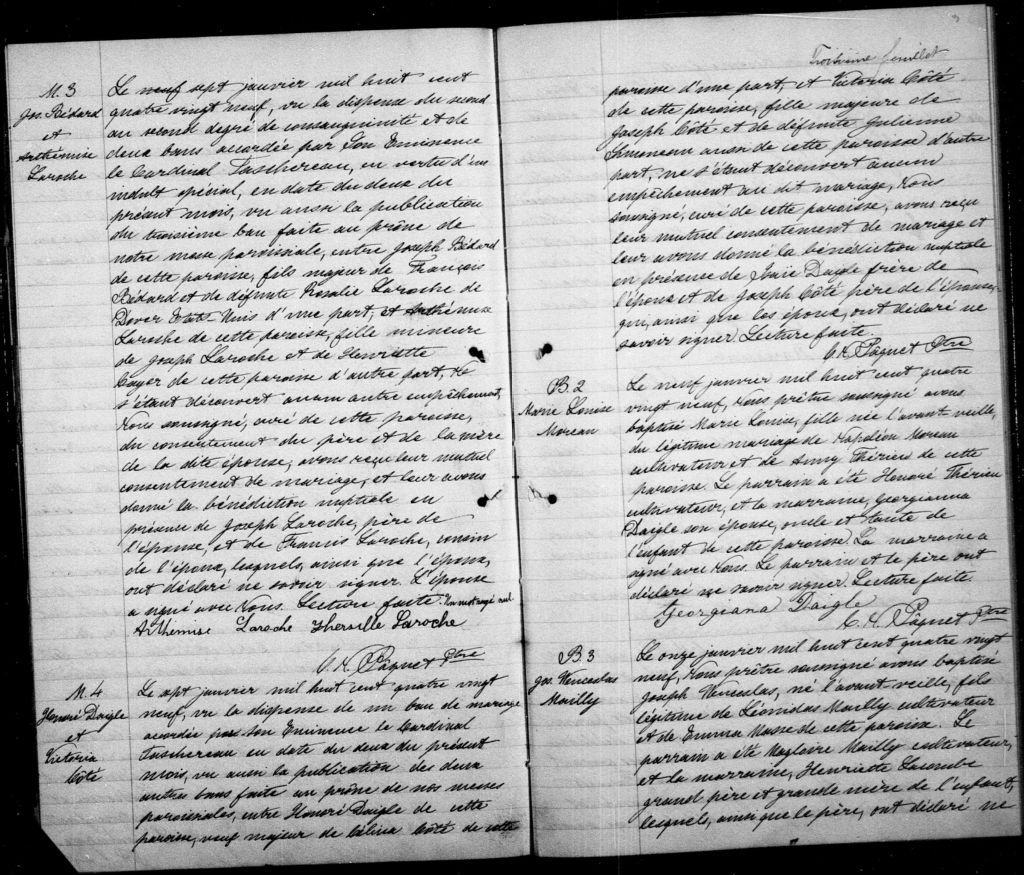 M. 3
Jos. Bédard
et
Arthémise
Laroche
Le neuf sept janvier mil huit cent
quatre vingt neuf, vu la dispense du second
au second degré de consanguinité et de
deux bans accordée par Son Eminence
le Cardinal Taschereau, en vertu d'un
indult spécial, en date du deux du
présent mois, vu aussi la publication
du troisième ban faite au prône de
notre messe paroissiale, entre Joseph Bédard
de cette paroisse, fils majeur de François
Bédard et de défunte Rosalie Laroche de
Dover Etats-Unis d'une part, et Arthémise
Laroche de cette paroisse, fille mineure
de Joseph Laroche et de Henriette
Cayer de cette paroisse d'autre part, Ne
s'étant découvert aucun autre empêchement,
Nous soussigné, curé de cette paroisse,
du consentement du père et de la mère
de la dite épouse, avons reçu leur mutuel
consentement de mariage, et leur avons
donné la bénédiction nuptiale en
présence de Joseph Laroche, père de
l'épouse, et de Francis Laroche, cousin
de l'époux, lesquels, ainsi que l'époux,
ont déclaré ne savoir signer. L'épouse
a signé avec Nous. Lecture faite. Un mot rayé nul
Arthémise Laroche Thersille Laroche
Paquet Ptre
M. 4
Honoré Daigle
et
Victoria
Côté
Le sept janvier mil huit cent quatre vingt
neuf, vu la dispense de un ban de mariage
accordée par Son Eminence le Cardinal
Taschereau en date du deux du présent
mois, vu aussi la publication des deux
autres bans faite au prône de nos messes
paroissiales, entre Honoré Daigle de cette
paroisse, veuf majeur de Célina Côté de cette
3
Troisième feuillet
paroisse d'une part, et Victoria Côté
de cette paroisse, fille majeure de
Joseph Côté et de défunte Julienne
Simoneau aussi de cette paroisse d'autre
part, ne s'étant découvert aucun
empêchement au dit mariage, Nous
soussigné, curé de cette paroisse, avons reçu
leur mutuel consentement de mariage et
leur avons donné la bénédiction nuptiale
en présence de Daigle frère de
l'époux et de Joseph Côté père de l'épouse,
qui, ainsi que les époux, ont déclaré ne
savoir signer. Lecture faite.
Paquet Ptre
B. 2
Marie Louise
Moreau
Le neuf janvier mil huit cent quatre
vingt neuf, Nous prêtre soussigné avons
baptisé Marie Louise, fille née l'avant veille,
du légitime mariage de Napoléon Moreau
cultivateur et de Anny Thérien de cette
paroisse. Le parrain a été Honoré Thérien
cultivateur, et la marraine, Georgianna
Daigle son épouse, oncle et tante de
l'enfant de cette paroisse. La marraine a
signé avec Nous. Le parrain et le père ont
déclaré ne savoir signer. Lecture faite.
Georgeana Daigle
Paquet Ptre
B. 3
Jos. Wenceslas
Mailly
Le onze janvier mil huit cent quatre vingt
neuf, Nous prêtre soussigné avons baptisé
Joseph Venceslas, né l'avant veille, fils
légitime de Léonidas Mailly cultivateur
et de Emma Masse de cette paroisse. Le
parrain a été Magloire Mailly cultivateur,
et la marraine, Henriette Lacombe
grand père et grande mère de l'enfant,
lesquels, ainsi que le père, ont déclaré ne